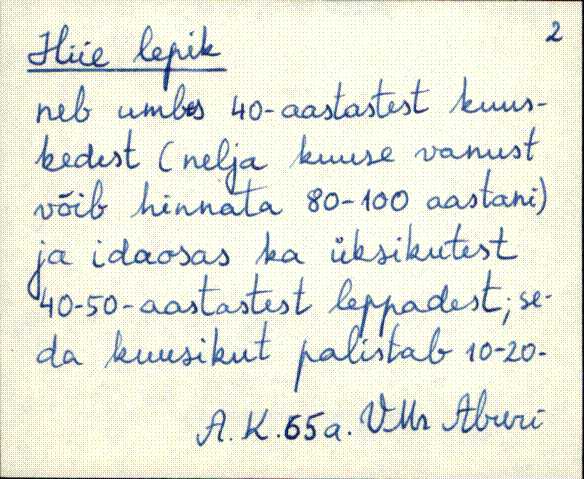 2
Hiie lepik
neb umbes 40-aastastest kuus-
kedest (nelja kuuse vanust
võib hinnata 80-100 aastani)
ja idaosas ka üksikutest
40-50-aastastest leppadest; se-
da kuusikut palistab 10-20-
A. K. 65a. VMr Aburi